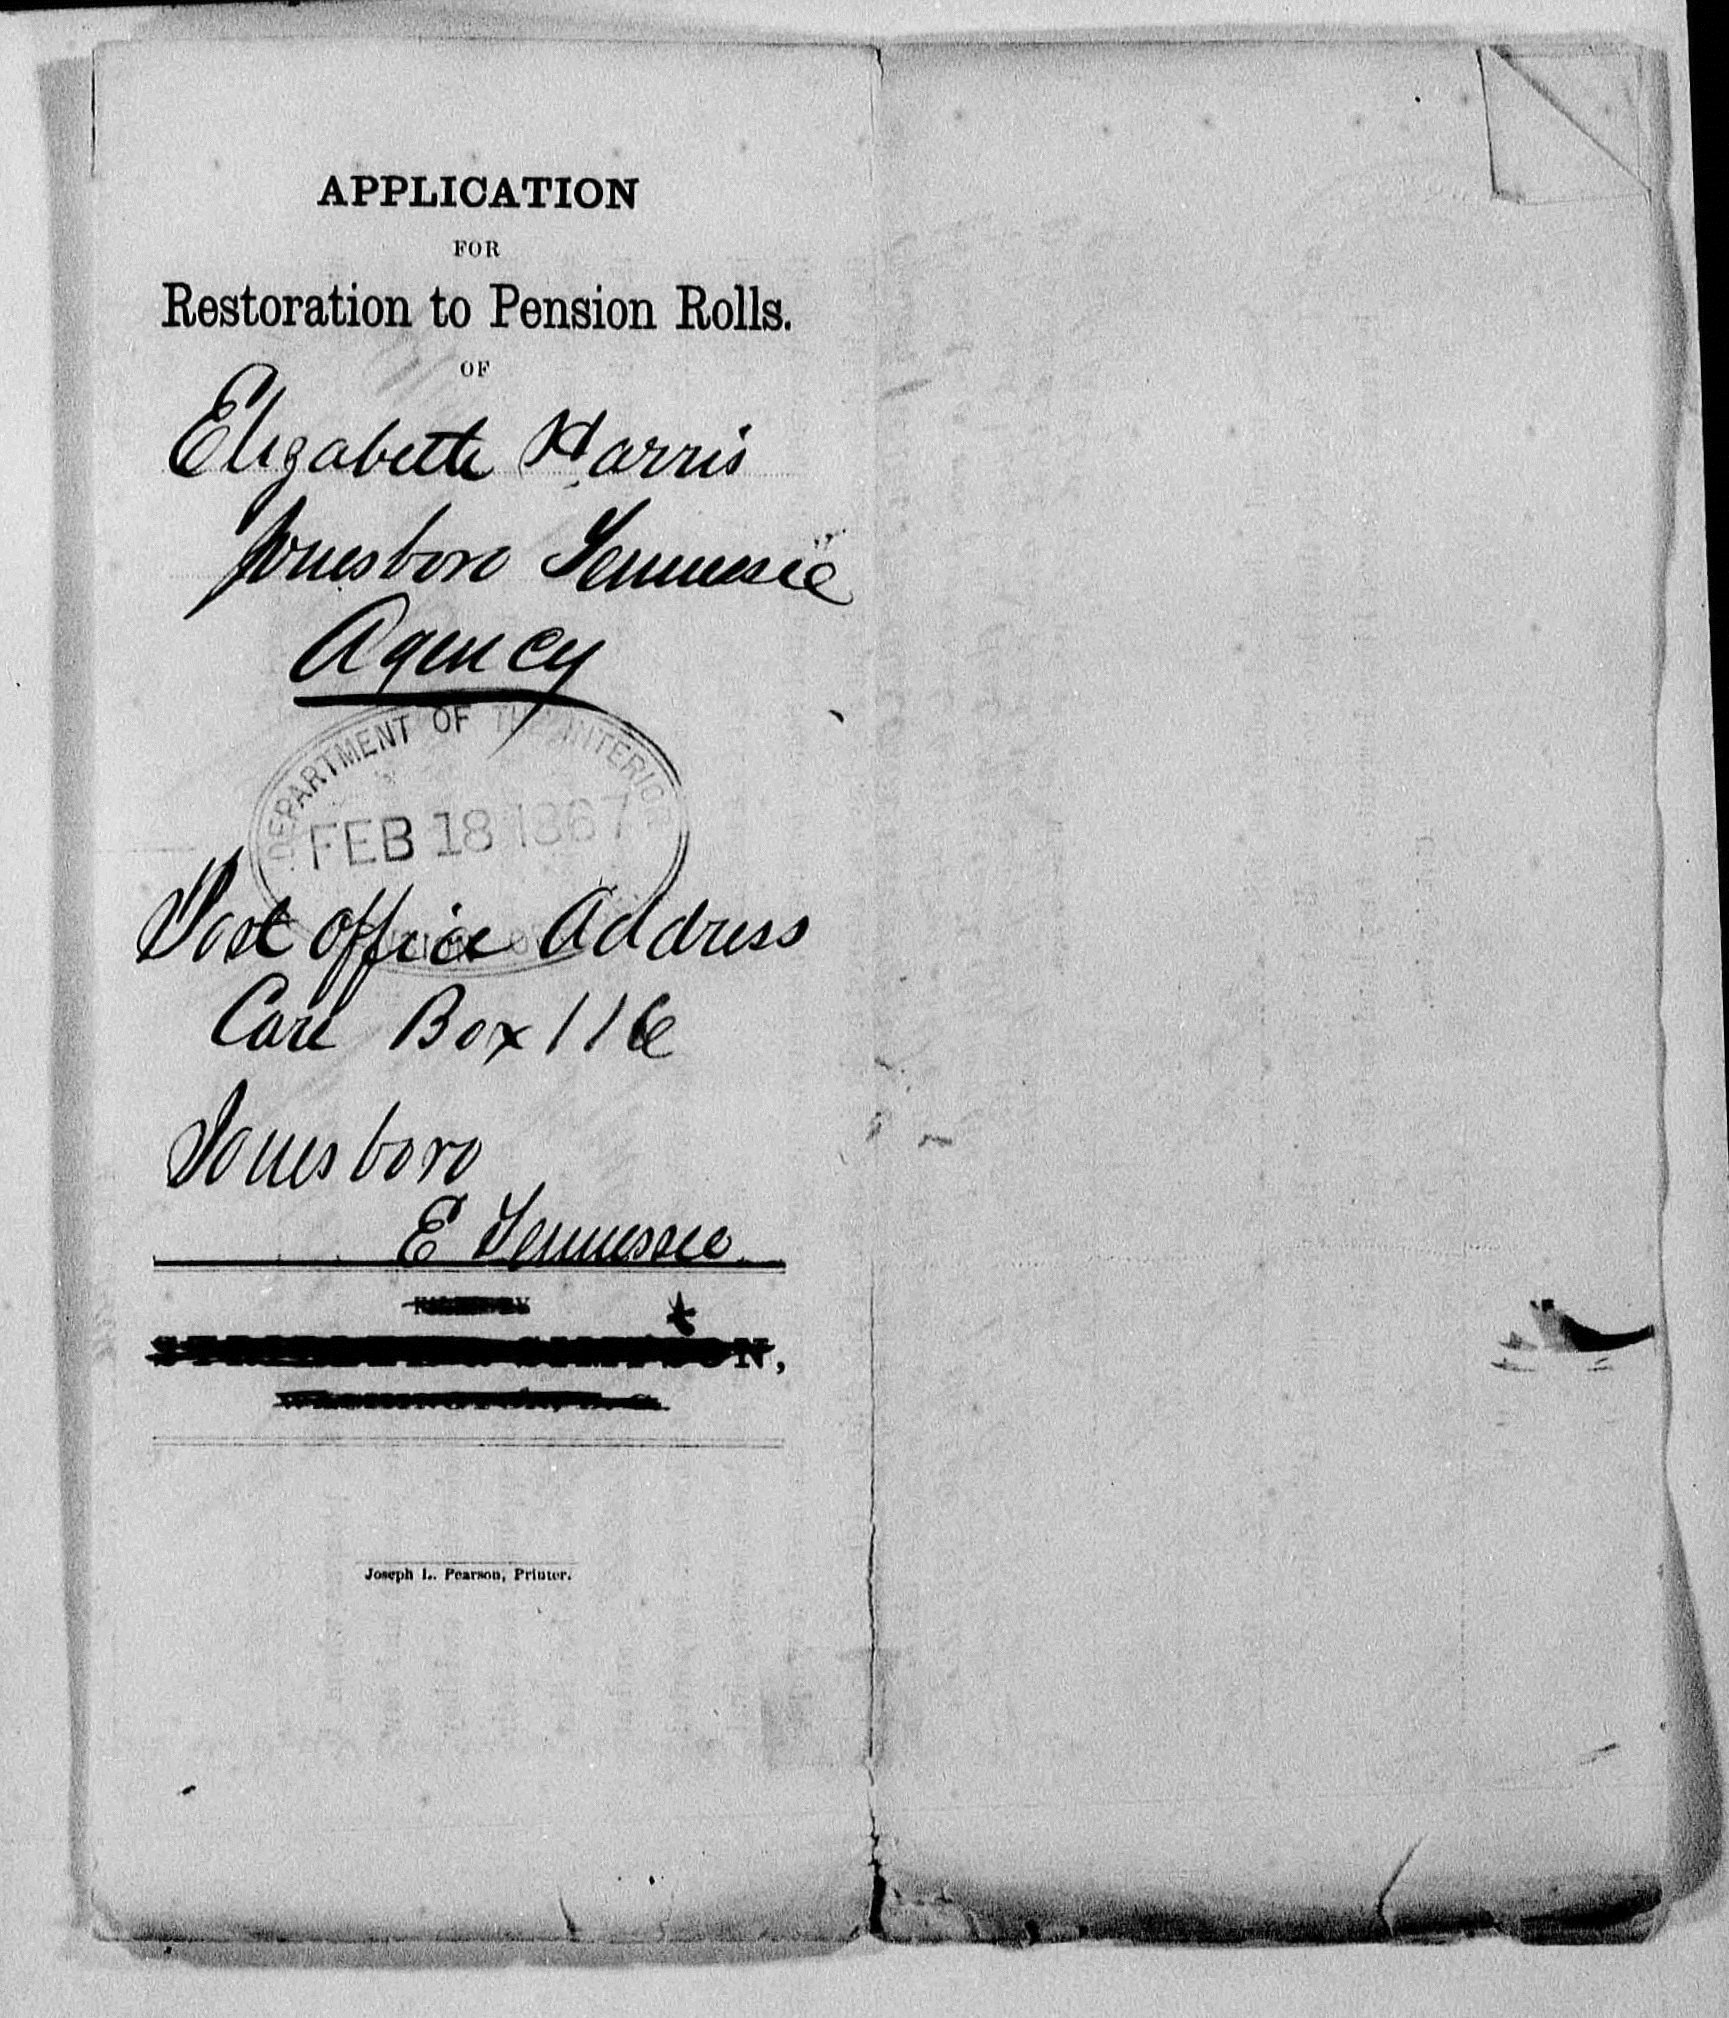 APPLICATION
FOR
Restoration to Pension Rolls.
OF
Elizabeth Harris
Jonesboro Tennessee
Agency
DEPARTMENT OF THE INTERIOR
FEB 18 1867
Post office Address
Care Box 116
Jonesboro
E Tennessee
Joseph L. Pearson, Printer.